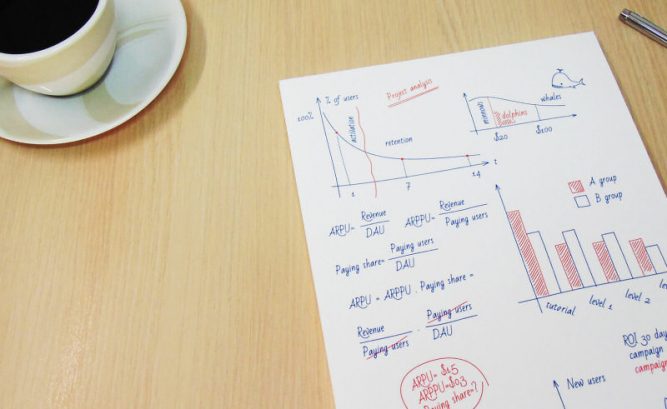 Project analysis
% of users
100%
activation
retention
1
7
14
t
minnows
dolphins
whales
$20
$100
ARPU= Revenue
DAU
ARPPU= Revenue
Paying users
Paying share= Paying users
DAU
ARPU = ARPPU . Paying share =
Revenue
Paying users
. Paying users
DAU
A group
B group
tutorial
level 1
level 2
ROI 30 day
campaign
campaign
ARPU= $15
ARPPU=$03
Paying share=?
New users